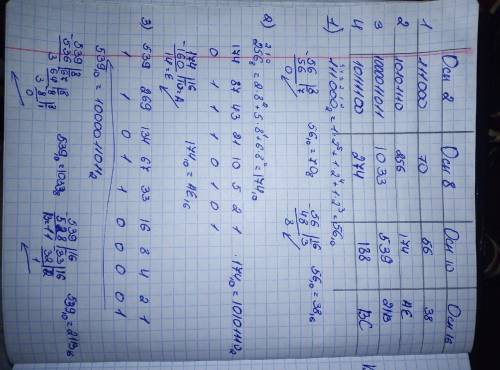 Осн 2 Осн 8 Осн 10 Осн 16
1 111000 70 56 38
2 1010110 256 174 AE
3 1000011011 1033 539 21B
4 10111100 274 188 BC
1) 111000₂ = 1·2⁵ + 1·2⁴ + 1·2³ = 56₁₀
56 |8
56 7
0
56₁₀ = 70₈
56 |16
48 3
8
56₁₀ = 38₁₆
2) 256₈ = 2·8² + 5·8¹ + 6·8⁰ = 174₁₀
174 87 43 21 10 5 2 1
0 1 1 1 0 1 0 1
174₁₀ = 10101110₂
174 |16
160 10=A
14=E
174₁₀ = AE₁₆
3) 539 269 134 67 33 16 8 4 2 1
1 1 0 1 1 0 0 0 0 1
539₁₀ = 1000011011₂
539 |8
536 67 |8
3 64 8 |8
3 8 1
0
539₁₀ = 1033₈
539 |16
528 33 |16
B=11 32 2
1
539₁₀ = 21B₁₆